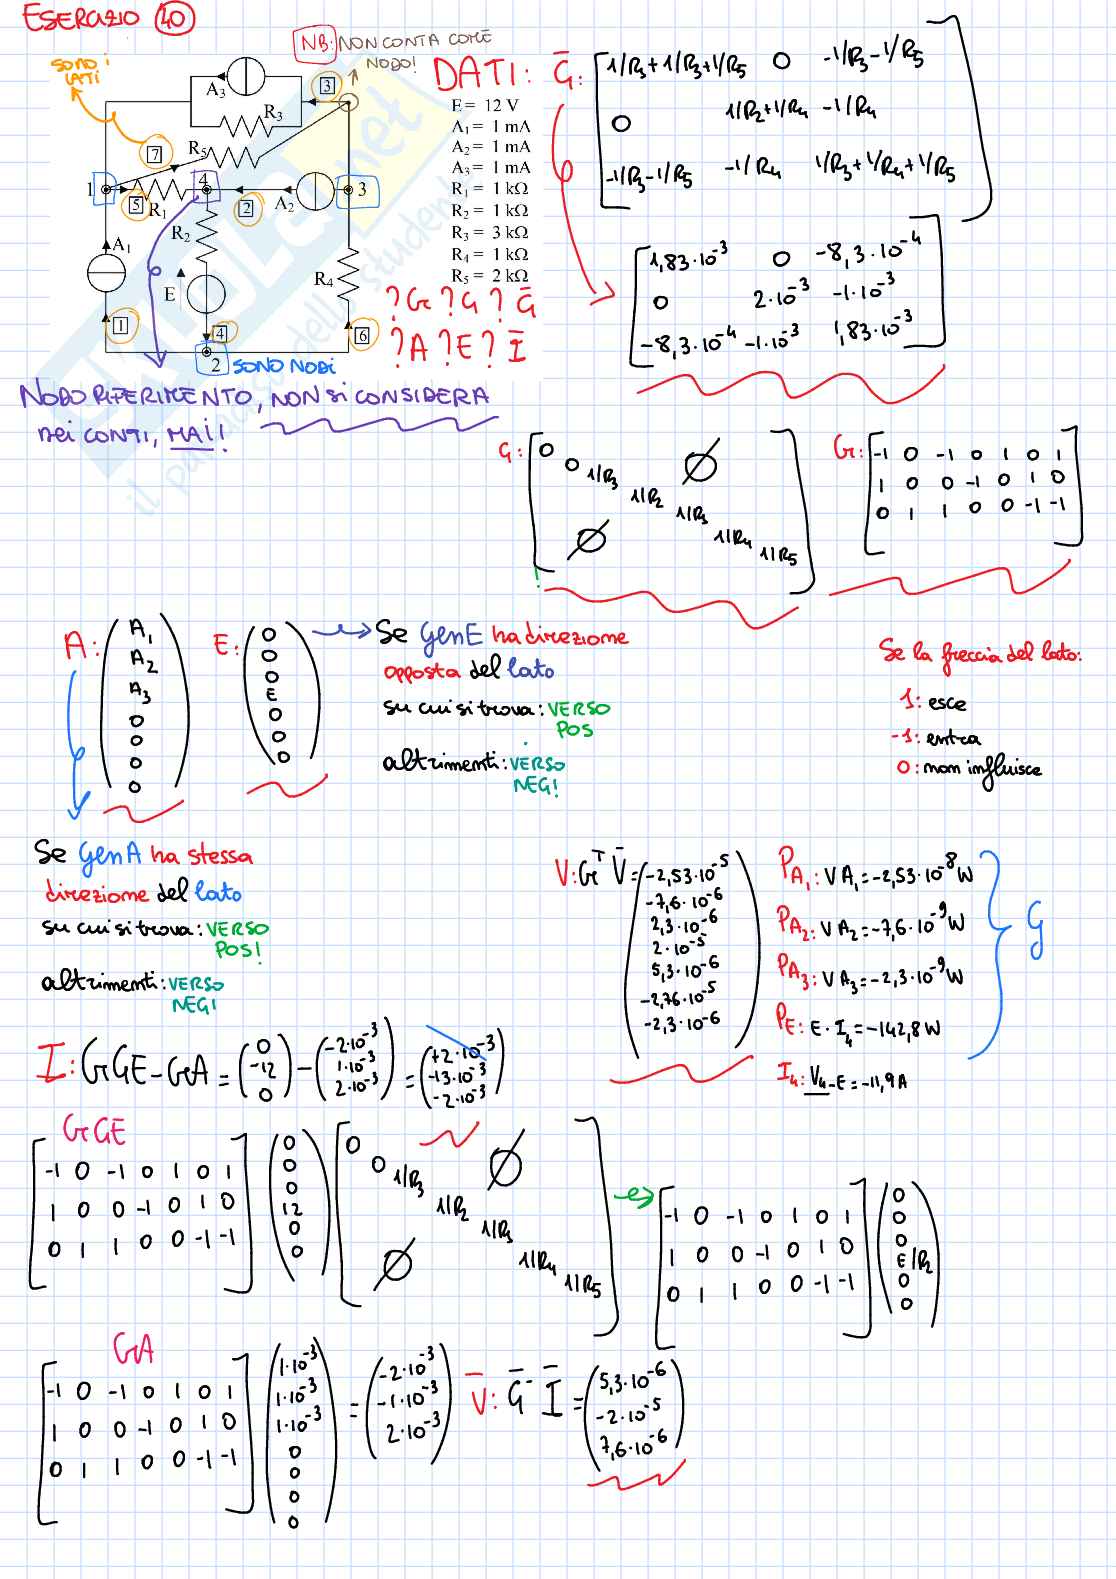 ESERCIZIO 40
NB: NON CONTA COME
NODO!
SONO i
LATI
A3
R3
3
7
R5
1
5
R1
4
2
A2
3
A1
R2
E
R4
1
4
6
2
SONO NODI
DATI:
E = 12 V
A1 = 1 mA
A2 = 1 mA
A3 = 1 mA
R1 = 1 kΩ
R2 = 1 kΩ
R3 = 3 kΩ
R4 = 1 kΩ
R5 = 2 kΩ
? Gr ? G ? G̅
? A ? E ? I̅
G̅:
1/R3+1/R3+1/R5 0 -1/R3-1/R5
0 1/R2+1/R4 -1/R4
-1/R3-1/R5 -1/R4 1/R3+1/R4+1/R5
1,83·10⁻³ 0 -8,3·10⁻⁴
0 2·10⁻³ -1·10⁻³
-8,3·10⁻⁴ -1·10⁻³ 1,83·10⁻³
NODO RIFERIMENTO, NON SI CONSIDERA
nei CONTI, MAI!
G:
0
0
1/R3
1/R2
1/R3
1/R4
1/R5
∅
∅
Gr:
-1 0 -1 0 1 0 1
1 0 0 -1 0 1 0
0 1 1 0 0 -1 -1
A:
A1
A2
A3
0
0
0
0
E:
0
0
0
E
0
0
0
Se genE ha direzione
opposta del lato
su cui si trova: VERSO
POS
altrimenti: VERSO
NEG!
Se la freccia del lato:
1: esce
-1: entra
0: non influisce
Se genA ha stessa
direzione del lato
su cui si trova: VERSO
POS!
altrimenti: VERSO
NEG!
V: Grᵀ V̅ =
-2,53·10⁻⁵
-7,6·10⁻⁶
2,3·10⁻⁶
2·10⁻⁵
5,3·10⁻⁶
-2,76·10⁻⁵
-2,3·10⁻⁶
PA1: VA1 = -2,53·10⁻⁸ W
PA2: VA2 = -7,6·10⁻⁹ W
PA3: VA3 = -2,3·10⁻⁹ W
PE: E·I4 = -142,8 W
I4: V4-E = -11,9 A
G
I: GrGE - GrA =
0
-12
0
-
-2·10⁻³
1·10⁻³
2·10⁻³
=
+2·10⁻³
-13·10⁻³
-2·10⁻³
GrGE
-1 0 -1 0 1 0 1
1 0 0 -1 0 1 0
0 1 1 0 0 -1 -1
0
0
0
12
0
0
0
0
1/R3
1/R2
1/R3
1/R4
1/R5
∅
∅
-1 0 -1 0 1 0 1
1 0 0 -1 0 1 0
0 1 1 0 0 -1 -1
0
0
0
E/R2
0
0
GrA
-1 0 -1 0 1 0 1
1 0 0 -1 0 1 0
0 1 1 0 0 -1 -1
1·10⁻³
1·10⁻³
1·10⁻³
0
0
0
0
=
-2·10⁻³
-1·10⁻³
2·10⁻³
V̅: G̅⁻ I̅ =
5,3·10⁻⁶
-2·10⁻⁵
7,6·10⁻⁶